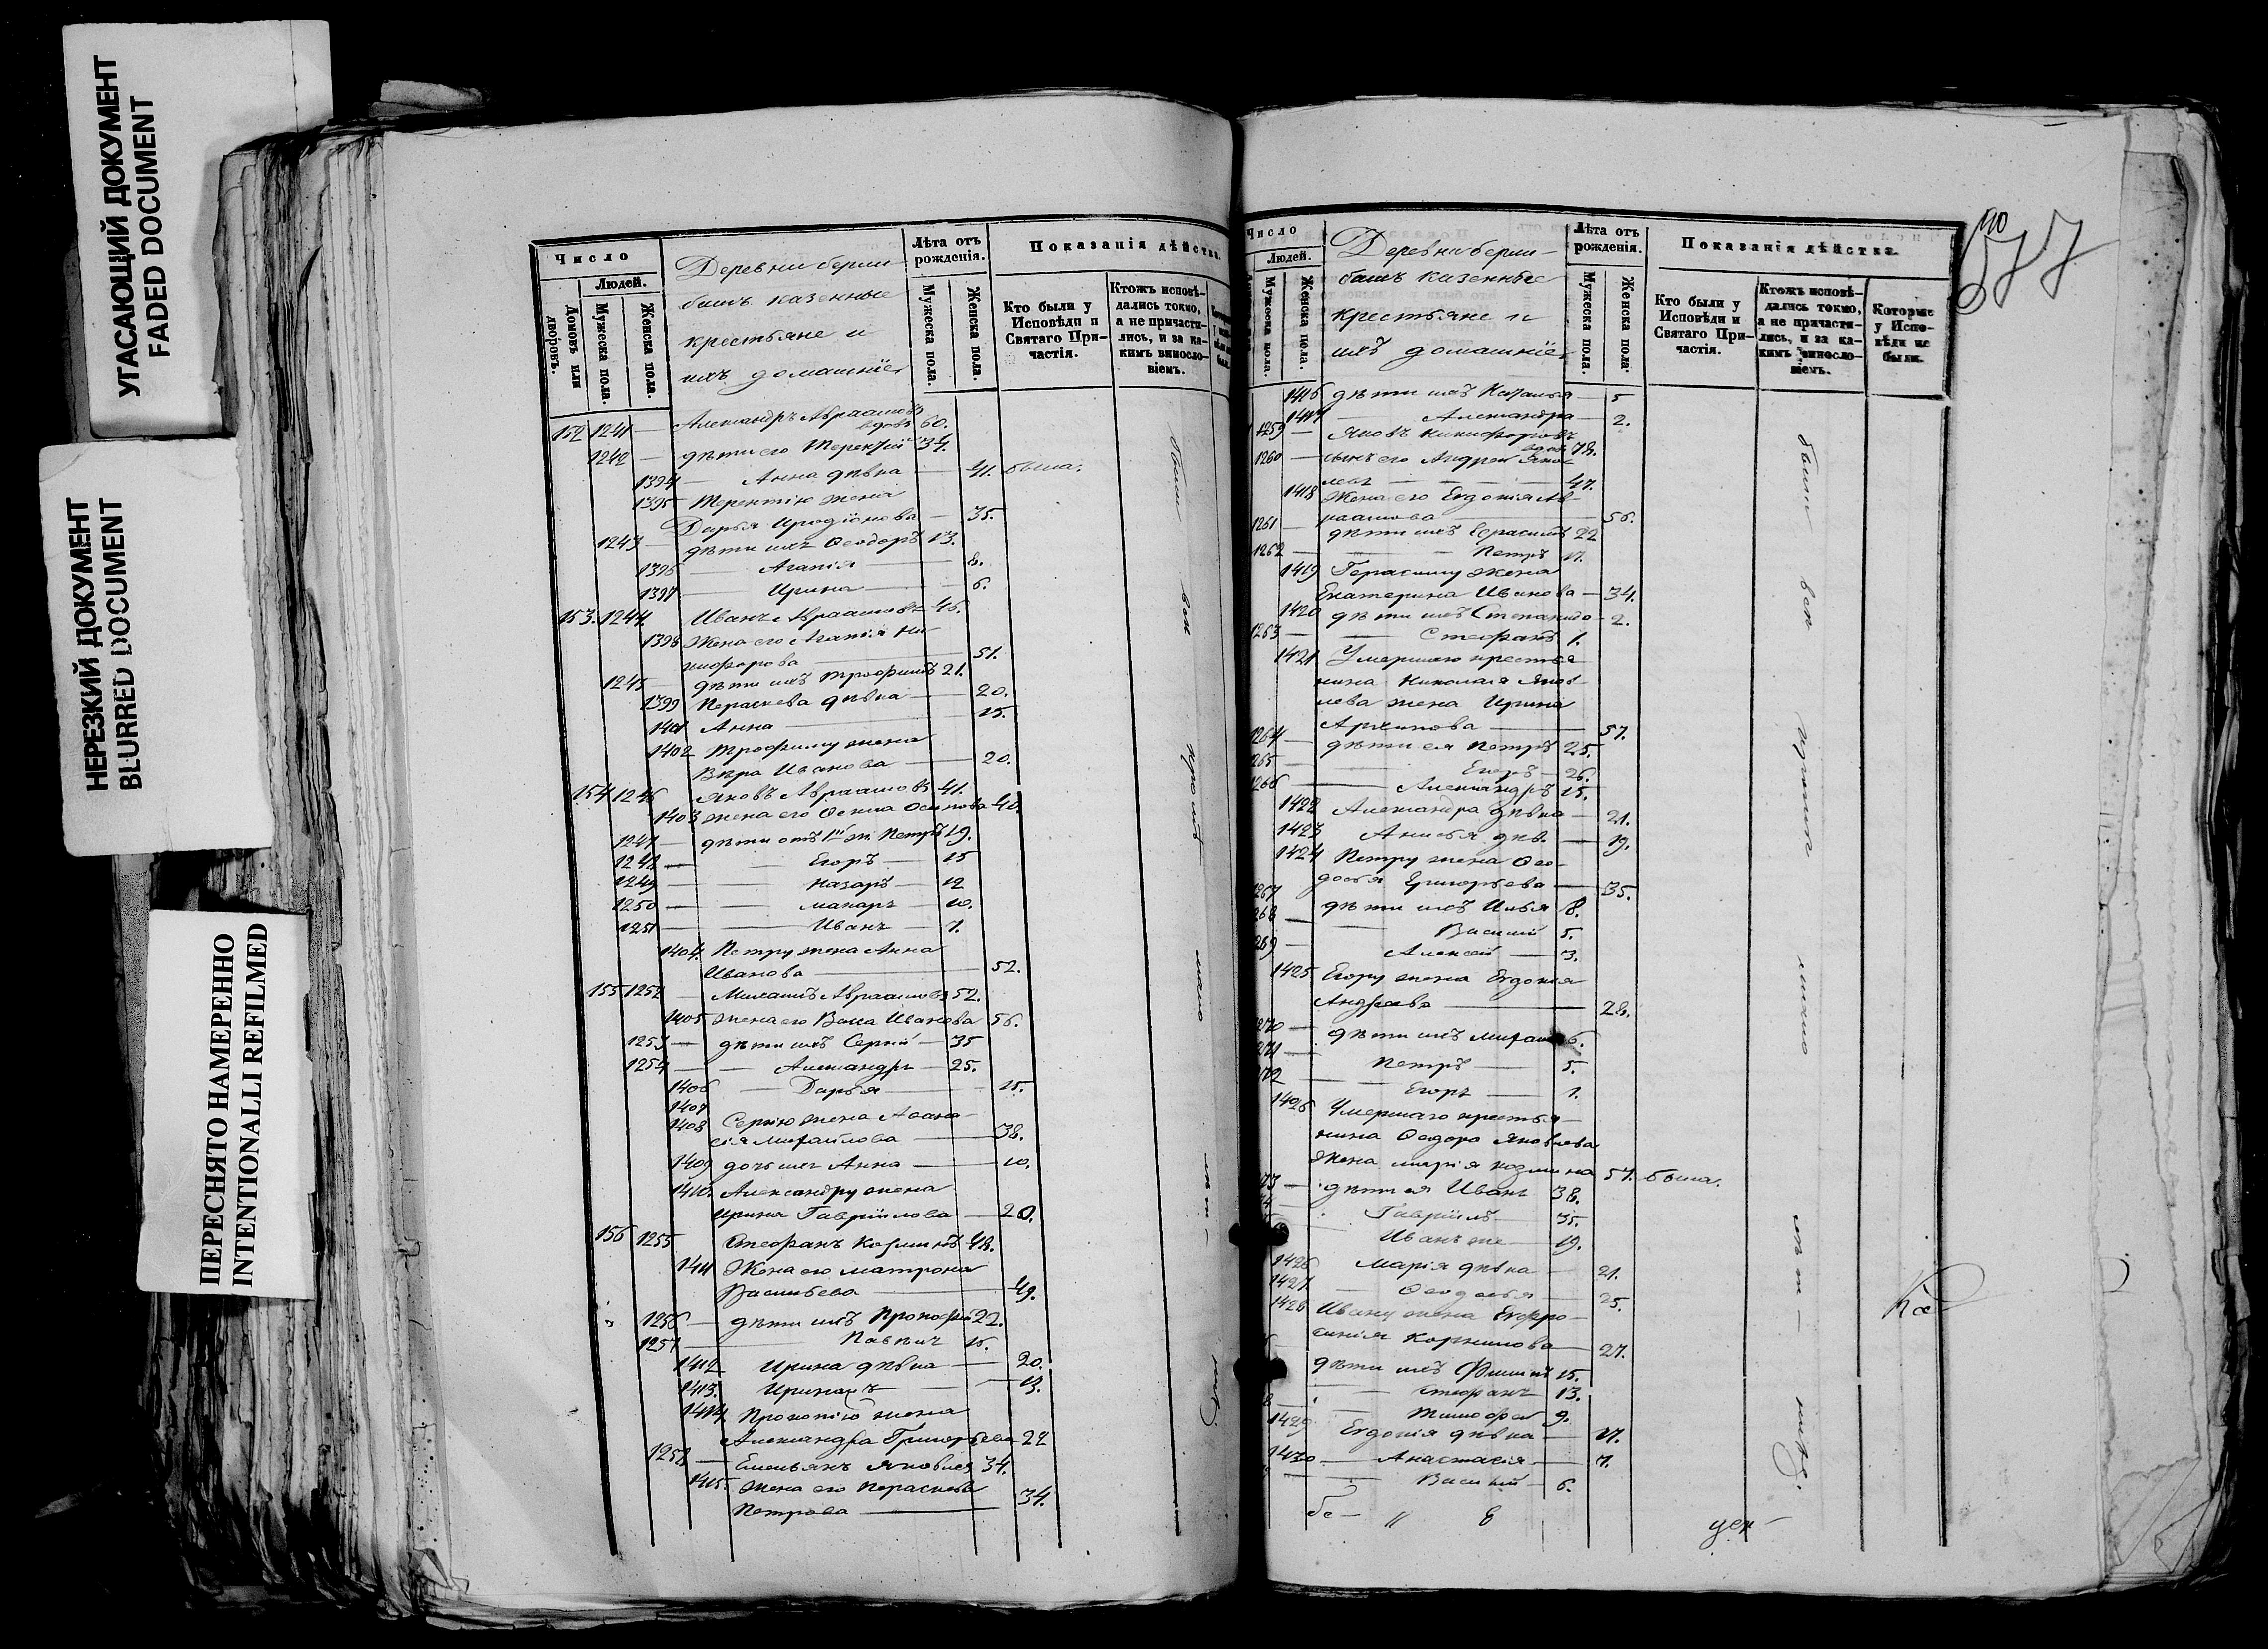 УГАСАЮЩИЙ ДОКУМЕНТ
FADED DOCUMENT
НЕРЕЗКИЙ ДОКУМЕНТ
BLURRED DOCUMENT
ПЕРЕСНЯТО НАМЕРЕННО
INTENTIONALLI REFILMED
Число
Людей.
Домовъ или дворовъ.
Мужеска пола.
Женска пола.
казенные
крестьяне и
ихъ домашніе
Лѣта отъ рожденія.
Мужеска пола.
Женска пола.
Показанія дѣйства.
Кто были у Исповѣди и Святаго Причастія.
Ктожъ исповѣдались токмо, а не причастились, и за какимъ винословіемъ.
152 1241 — Александръ Авраамовъ
вдовъ 60.
1242 — дѣти его Терентій 34.
1394 — Анна дѣвка — 41. была.
1395 Терентію жена
Дарья Иродіонова — 35.
1243 — дѣти ихъ Ѳеодоръ 13.
1396 — Агапія — 8.
1397 — Ирина — 6.
153. 1244 Иванъ Авраамовъ 46.
1398 Жена его Агапія Ни-
кифорова — 51.
1245 — дѣти ихъ Трофимъ 21.
1399 Параскева дѣвка — 20.
1401 Анна — 15.
1402 Трофиму жена
Вѣра Иванова — 20.
154 1246 Яковъ Авраамовъ 41.
1403 жена его Осипова 40.
1247 — дѣти отъ 1й ж. Петръ 19.
1248 — Егоръ — 15
1249 — Назаръ — 12
1250 — Макаръ — 10.
1251 — Иванъ — 7.
1404. Петру жена Анна
Иванова — 52.
155 1252 — Михаилъ Авраамовъ 52.
1405 жена его Иванова 56.
1253 — дѣти ихъ Сергій — 35
1254 — Александръ — 25.
1406 — Дарья — 15.
1407
1408 Сергію жена Аѳана-
сія Михаилова — 38.
1409 дочь ихъ Анна — 10.
1410. Александру жена
Ирина Гавріилова — 20.
156 1255 Стефанъ Козминъ 48.
1411 Жена его Матрона
Васильева — 49.
1256 — дѣти ихъ Прокофій 22.
1257 — 15.
1412 Ирина дѣвка — 20.
1413. — 13.
1414 Прокопію жена
Александра Григорьева 22
1258 — Емельянъ Яковлев 34.
1415. жена его Параскева
Петрова — 34.
Число
Людей.
Мужеска пола.
Женска пола.
казенные
крестьяне и
ихъ домашніе
Лѣта отъ рожденія.
Мужеска пола.
Женска пола.
Показанія дѣйства.
Кто были у Исповѣди и Святаго Причастія.
Ктожъ исповѣдались токмо, а не причастились, и за какимъ винословіемъ.
Которые у Исповѣди не были.
1416 дѣти ихъ Наталья — 5
1417 — Александра — 2.
1259 — Яковъ Никифоровъ
вдов. 78.
1260 — сынъ его Андрей Яков
левъ — 47.
1418 Жена его Евдокія Ав-
раамова — 56.
1261 — дѣти ихъ Герасимъ 22
1262 — Петръ 17.
1419 Герасиму жена
Екатерина Иванова — 34.
1420 дѣти ихъ Степанида — 2.
1263 — Стефанъ 1.
1421 Умершаго крестья
нина Николая Яков
лева жена Ирина
Архипова — 57.
1264 — дѣти ея Петръ 25.
265 — Егоръ — 26.
1266 — Александръ 15.
1422 Александра дѣвка — 21.
1423 Анисья дѣв. — 19.
1424 Петру жена Ѳео-
досья Григорьева — 35.
1267 дѣти ихъ Илья 8.
268 — Василій 5.
269 — Алексѣй — 3.
1425 Егору жена Евдокія
Андреева — 28.
270 — дѣти ихъ 6.
271 — Петръ — 5.
272 — Егоръ — 1.
1426 Умершаго крестья-
нина Ѳеодора Яковлева
Жена Марія Козмина 57. была.
73 — дѣти ея Иванъ 38.
Гавріилъ — 35.
Иванъ же — 19.
1426 Марія дѣвка — 21.
1427 — Ѳеодосья — 25.
1428 Ивану жена Евфро-
синія Корнилова — 27.
дѣти ихъ Филипъ 15.
Стефанъ 13.
Тимофей 9.
1429 Евдокія дѣвка — 17.
1430 — Анастасія — 7.
Василій — 6.
577